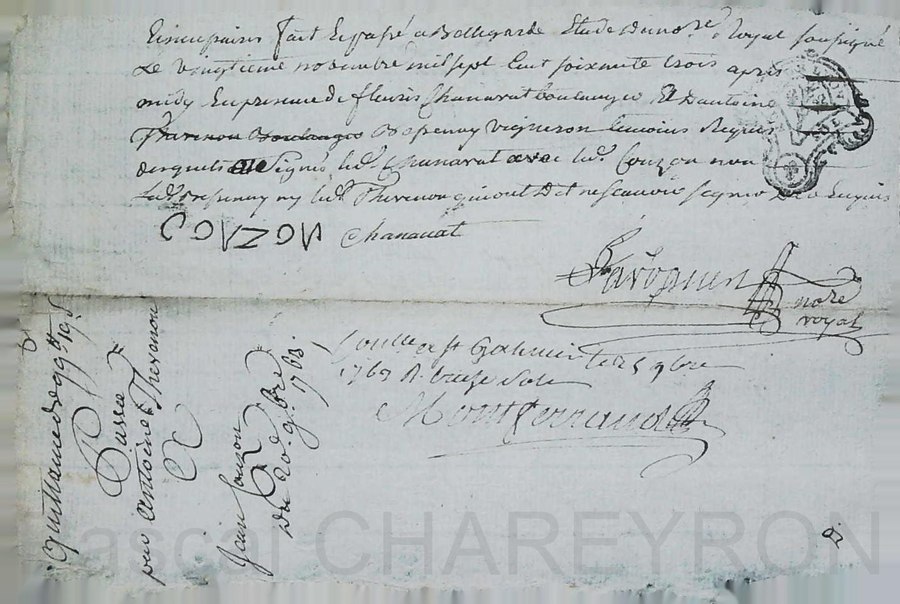 fait et passé a Bellegarde Etude du no.re Royal soussigné
Le vingtieme novembre mil sept Cent soixante trois apres
midy En presence de fleuris Chanavat boulanger Et D'antoine
Thevenon Boulanger Despenay vigneron temoins Requis
signé led. Chanavat avec led. Couzon non
led. Despenay ny led. Thevenon qui ont Dit ne scavoir signer De ce Enquis
COVZON Chanavat
no.re
royal
Con.lle a st Galmier le 25 9bre
1763 R. treize sols
Montferrand
Quittance de 99.tt 19.s
Passée
pour Antoine Thevenon
Jean Couzon
Du 20.e 9bre 1763.
Pascal CHAREYRON